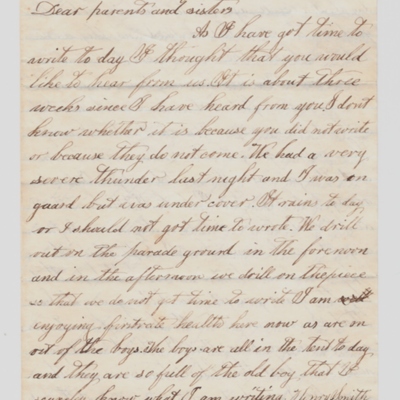 Dear parents and sisters
As I have got time to
write to day I thought that you would
like to hear from us. It is about three
weeks since I have heard from you I dont
know whether it is because you did not wrote
or because they do not come. We had a very
severe thunder last night and I was on
guard but was under cover. It rains to day
or I should not got time to wrote. We drill
out on the parade ground in the forenoon
and in the afternoon we drill on the piece
so that we do not get time to write I am
enjoying firstrate health here now as are m
out of the boys. The boys are all in the tent to day
and they are so full of the old boy that I
know what I am writing. Smith